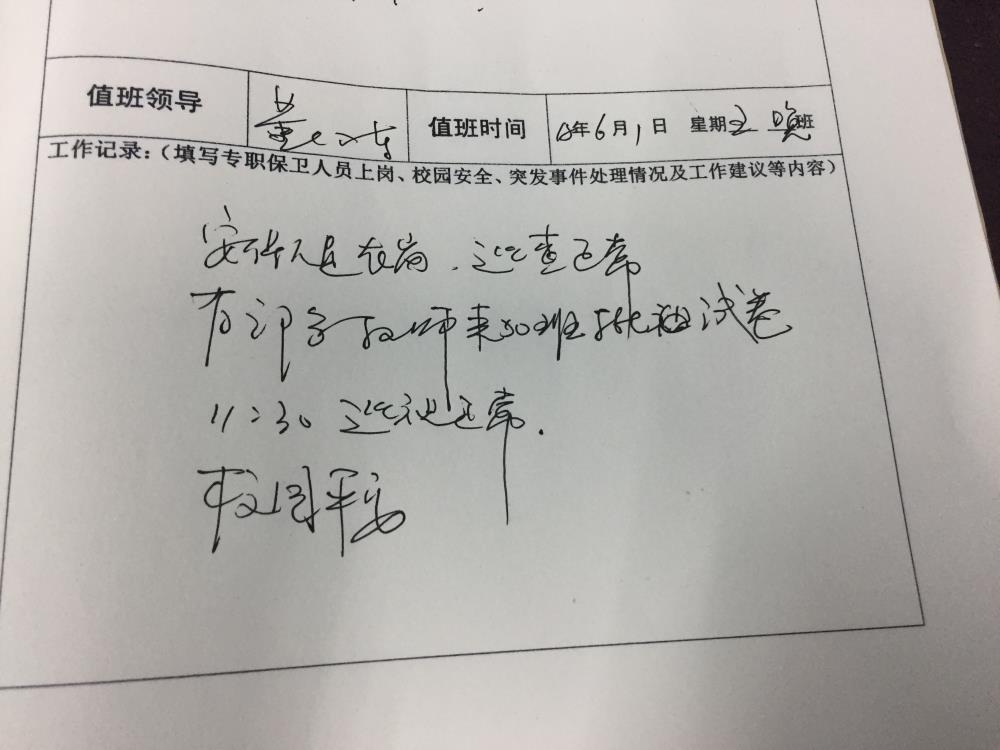 值班领导 值班时间 18年6月1日 星期五 晚班
工作记录：（填写专职保卫人员上岗、校园安全、突发事件处理情况及工作建议等内容）
安保人员在岗．巡查正常
有部分教师来加班批改试卷
11:30 巡视正常．
校园平安